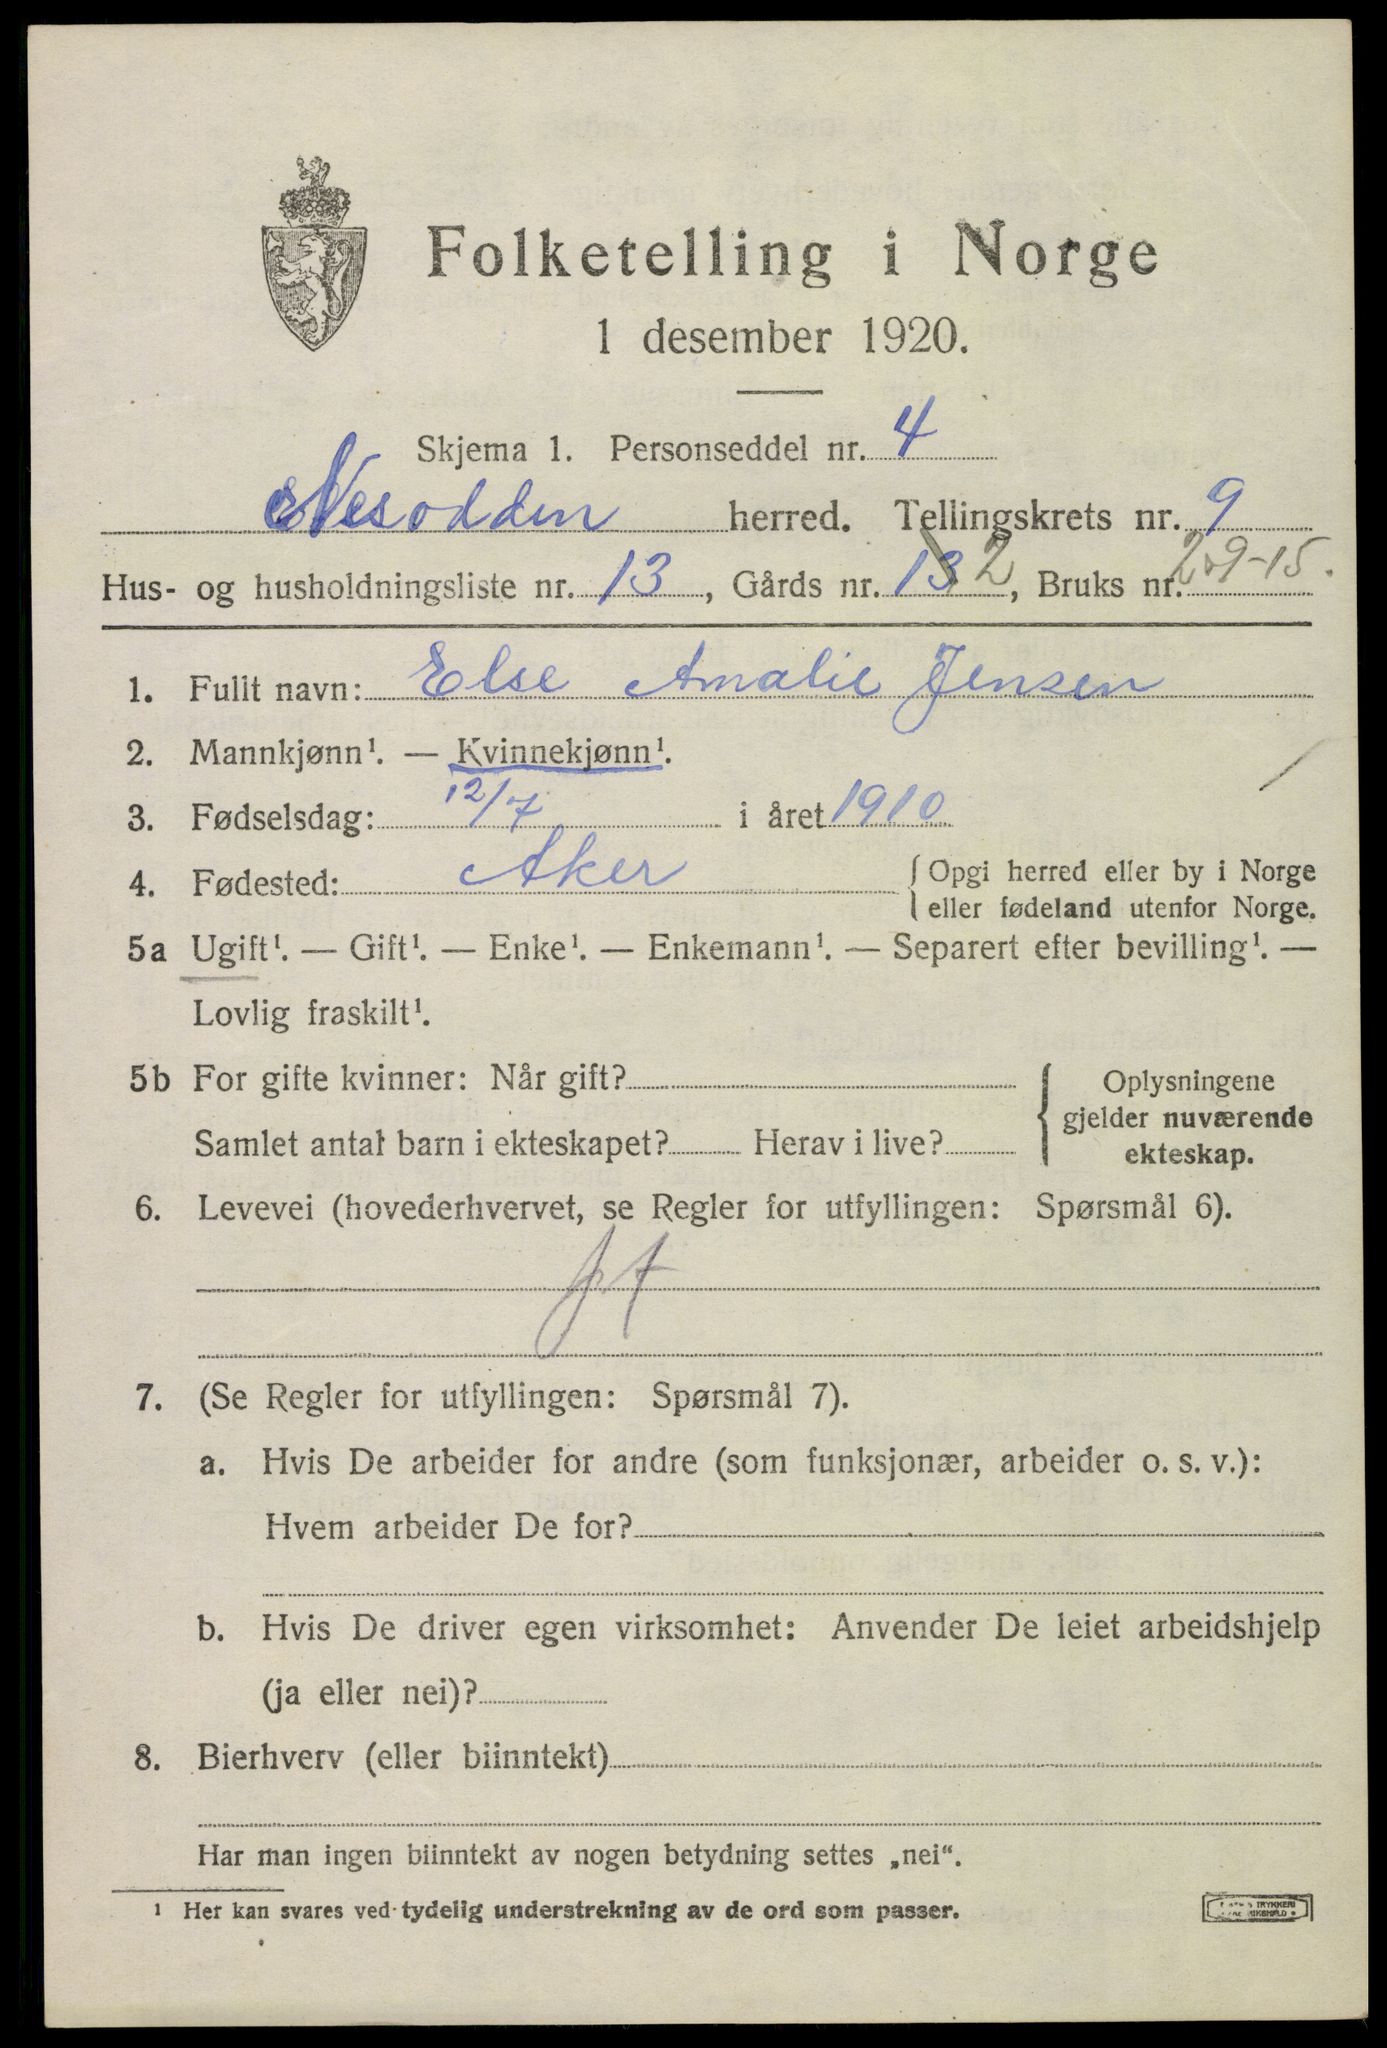 Folketelling i Norge
1 desember 1920.
Skjema 1. Personseddel nr. 4
Nesodden herred. Tellingskrets nr. 9
Hus- og husholdningsliste nr. 13, Gårds nr. 13 2, Bruks nr. 2-9-15.
1. Fullt navn: Else Amalie Jensen
2. Mannkjønn¹. — Kvinnekjønn¹.
3. Fødselsdag: 12/7 i året 1910
4. Fødested: Aker { Opgi herred eller by i Norge
eller fødeland utenfor Norge.
5a Ugift¹. — Gift¹. — Enke¹. — Enkemann¹. — Separert efter bevilling¹. —
Lovlig fraskilt¹.
5b For gifte kvinner: Når gift? { Oplysningene
gjelder nuværende
Samlet antal barn i ekteskapet? Herav i live? ekteskap.
6. Levevei (hovederhvervet, se Regler for utfyllingen: Spørsmål 6).
7. (Se Regler for utfyllingen: Spørsmål 7).
a. Hvis De arbeider for andre (som funksjonær, arbeider o. s. v.):
Hvem arbeider De for?
b. Hvis De driver egen virksomhet: Anvender De leiet arbeidshjelp
(ja eller nei)?
8. Bierhverv (eller biinntekt)
Har man ingen biinntekt av nogen betydning settes „nei“.
¹ Her kan svares ved tydelig understrekning av de ord som passer.